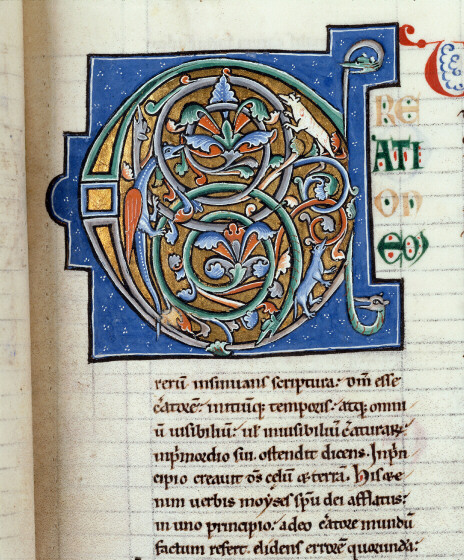 C
RE
ATI
ON
EM
rerū insinuans scriptura: dm̄ esse
c̄atorē: initiūq; temporis: atq; omni
ū uisibiliū: ul̄ inuisibiliū c̄aturarꝝ
inpͥmordio sui. ostendit dicens. Inpͥn
cipio creauit dс̄ celū & terrā. His &e
nim uerbis moyses spū dei afflatus:
in uno principio: a deo c̄atore mundū
factum refert. elidens errorē quorundā: